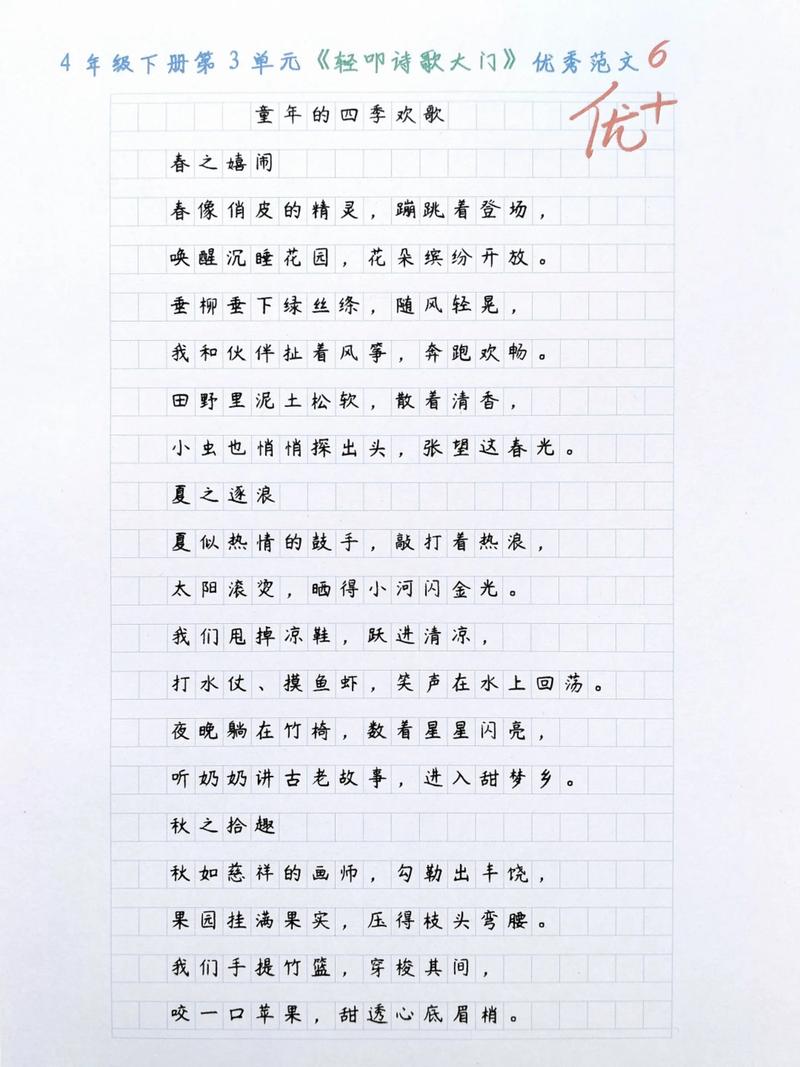 4年级下册第3单元《轻叩诗歌大门》优秀范文6
优+
童年的四季欢歌
春之嬉闹
春像俏皮的精灵，蹦跳着登场，
唤醒沉睡花园，花朵缤纷开放。
垂柳垂下绿丝绦，随风轻晃，
我和伙伴扯着风筝，奔跑欢畅。
田野里泥土松软，散着清香，
小虫也悄悄探出头，张望这春光。
夏之逐浪
夏似热情的鼓手，敲打着热浪，
太阳滚烫，晒得小河闪金光。
我们甩掉凉鞋，跃进清凉，
打水仗、摸鱼虾，笑声在水上回荡。
夜晚躺在竹椅，数着星星闪亮，
听奶奶讲古老故事，进入甜梦乡。
秋之拾趣
秋如慈祥的画师，勾勒出丰饶，
果园挂满果实，压得枝头弯腰。
我们手提竹篮，穿梭其间，
咬一口苹果，甜透心底眉梢。